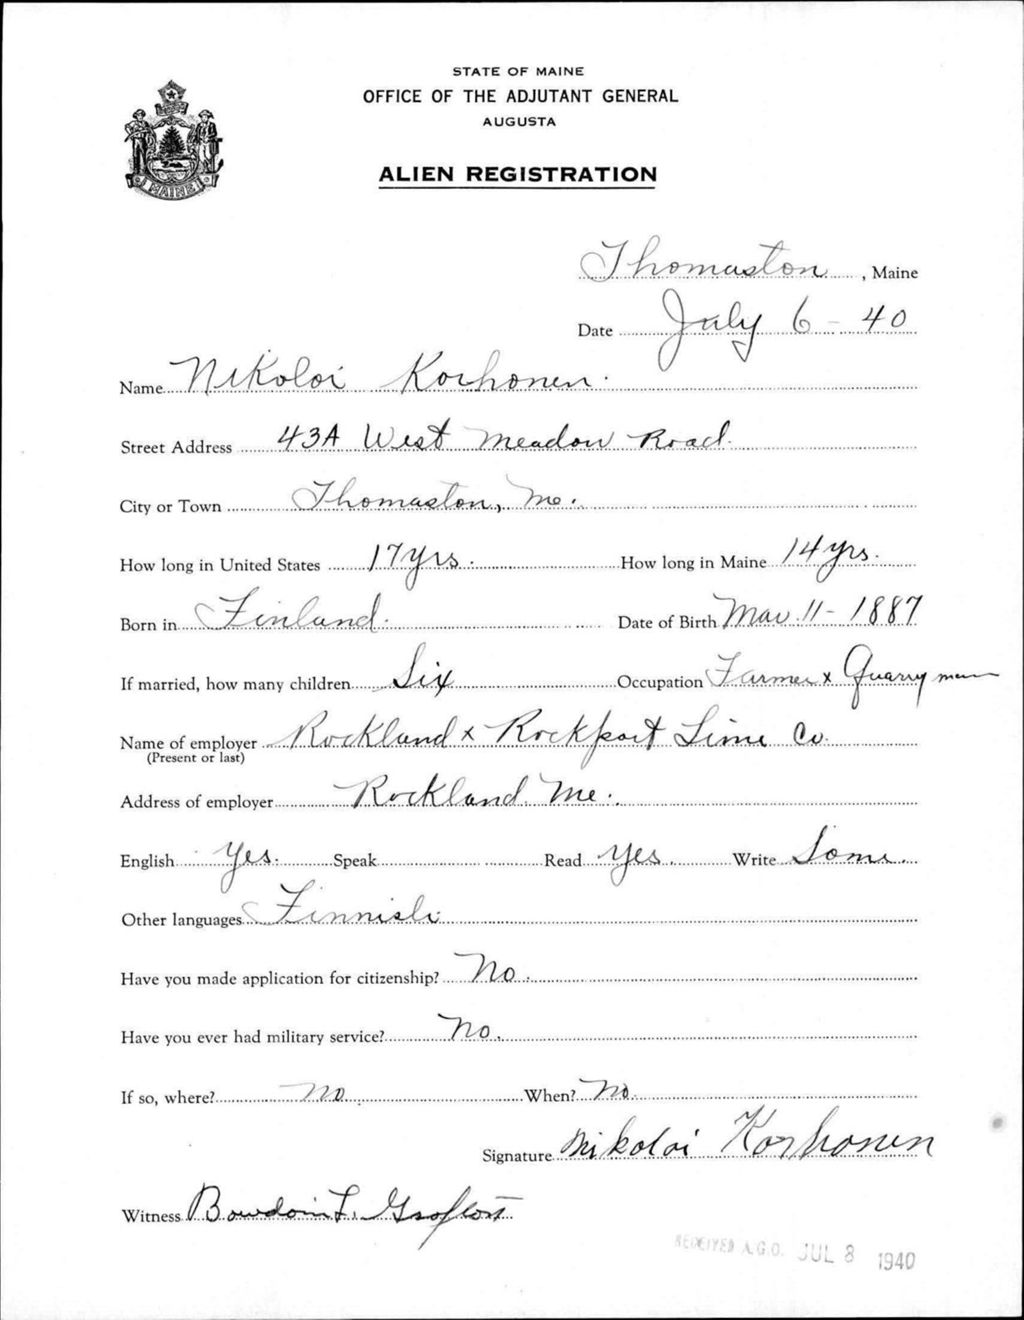 STATE OF MAINE
OFFICE OF THE ADJUTANT GENERAL
AUGUSTA
ALIEN REGISTRATION
MAINE
Thomaston, Maine
Date July 6 - 40
Name Nikoloi Korhonen.
Street Address 43A West Meadow Road.
City or Town Thomaston, Me.
How long in United States 17 yrs. How long in Maine 14 yrs.
Born in Finland. Date of Birth Mar 11 - 1887
If married, how many children Six Occupation Farmer x Quarry man
Name of employer Rockland x Rockport Lime Co.
(Present or last)
Address of employer Rockland Me.
English Yes. Speak Read Yes. Write Some.
Other languages Finnish
Have you made application for citizenship? No.
Have you ever had military service? No.
If so, where? No When? No.
Signature Nikolai Korhonen
Witness Bowdoin L. Grafton
RECEIVED A.G.O. JUL 8 1940